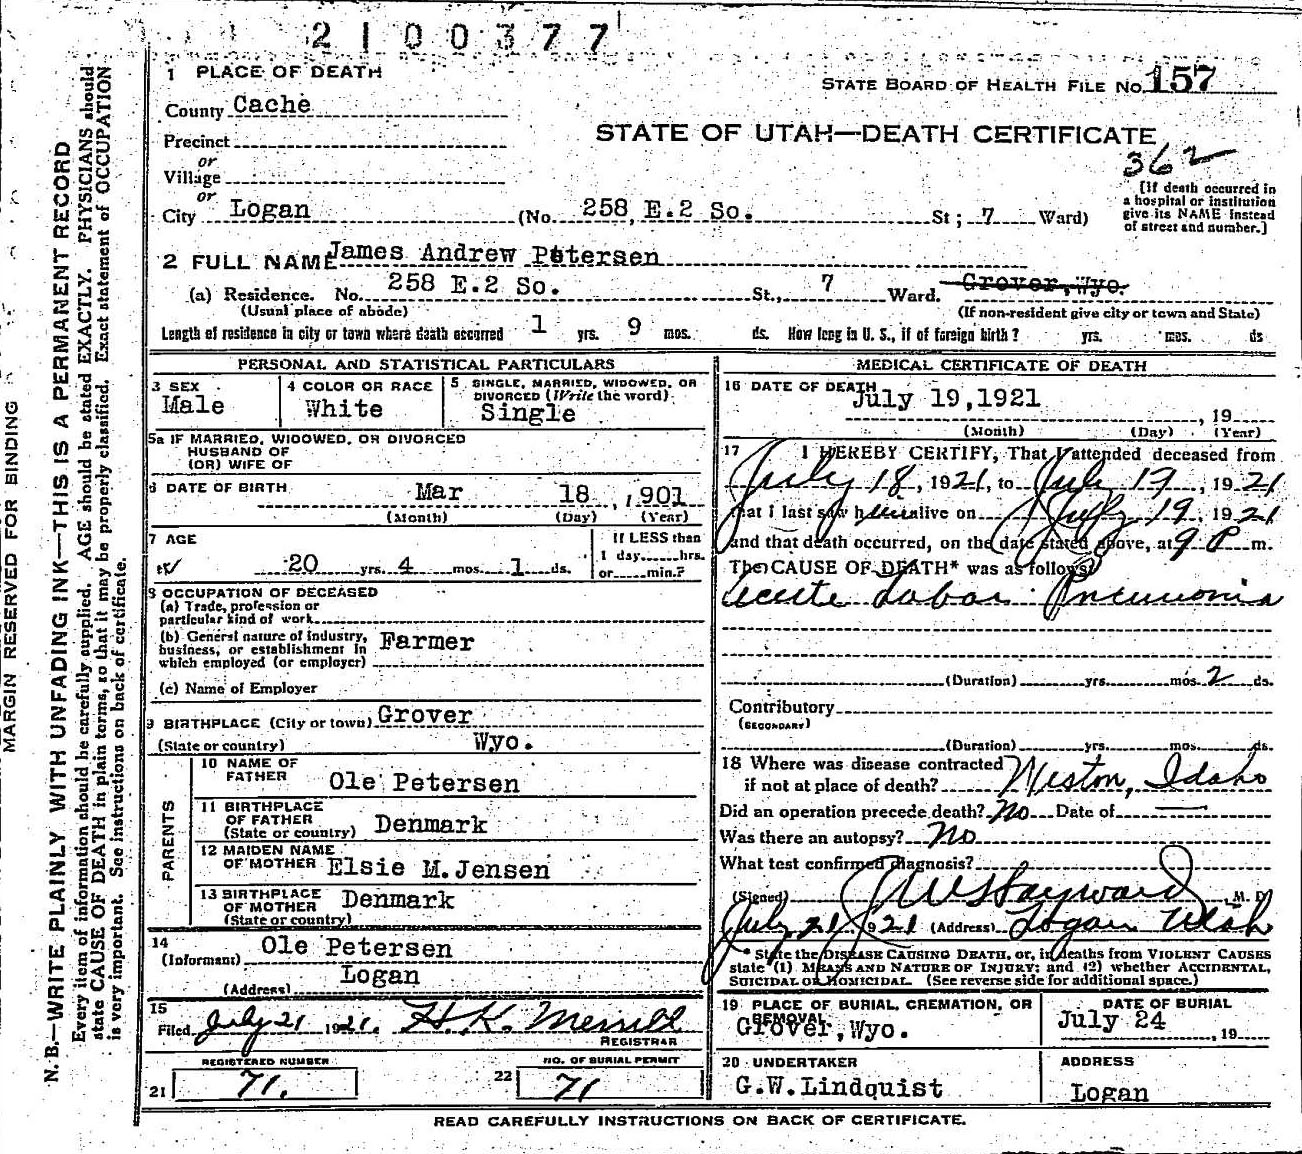 2100377
1 PLACE OF DEATH
STATE BOARD OF HEALTH FILE No. 157
County Cache
STATE OF UTAH—DEATH CERTIFICATE
Precinct
362
or
Village
or
[If death occurred in
a hospital or institution
give its NAME instead
of street and number.]
City Logan (No. 258 E.2 So. St; 7 Ward)
2 FULL NAME James Andrew Petersen
(a) Residence. No. 258 E.2 So. St., 7 Ward. Grover, Wyo.
(Usual place of abode) (If non-resident give city or town and State)
Length of residence in city or town where death occurred 1 yrs. 9 mos. ds. How long in U. S., if of foreign birth? yrs. mos. ds
PERSONAL AND STATISTICAL PARTICULARS
3 SEX
Male
4 COLOR OR RACE
White
5 SINGLE, MARRIED, WIDOWED, OR
DIVORCED (Write the word)
Single
5a IF MARRIED, WIDOWED, OR DIVORCED
HUSBAND OF
(OR) WIFE OF
6 DATE OF BIRTH Mar 18 ,1901
(Month) (Day) (Year)
7 AGE
20 yrs. 4 mos. 1 ds.
If LESS than
1 day......hrs.
or......min.?
8 OCCUPATION OF DECEASED
(a) Trade, profession or
particular kind of work
(b) General nature of industry,
business, or establishment in
which employed (or employer)
Farmer
(c) Name of Employer
9 BIRTHPLACE (City or town) Grover
(State or country) Wyo.
PARENTS
10 NAME OF
FATHER Ole Petersen
11 BIRTHPLACE
OF FATHER
(State or country) Denmark
12 MAIDEN NAME
OF MOTHER Elsie M. Jensen
13 BIRTHPLACE
OF MOTHER
(State or country) Denmark
14
(Informant) Ole Petersen
(Address) Logan
15
Filed July 21 1921. H. K. Merrill
REGISTRAR
REGISTERED NUMBER
21 71.
NO. OF BURIAL PERMIT
22 71
MEDICAL CERTIFICATE OF DEATH
16 DATE OF DEATH
July 19,1921 , 19
(Month) (Day) (Year)
17 I HEREBY CERTIFY, That I attended deceased from
July 18, 1921, to July 19, 1921
that I last saw him alive on July 19, 1921
and that death occurred, on the date stated above, at 9 P m.
The CAUSE OF DEATH* was as follows:
Acute Lobar Pneumonia
(Duration) yrs. mos. 2 ds.
Contributory
(SECONDARY)
(Duration) yrs. mos. ds.
18 Where was disease contracted
if not at place of death? Weston, Idaho
Did an operation precede death? No Date of —
Was there an autopsy? No
What test confirmed diagnosis?
(Signed) J W Hayward M. D.
July 21 1921 (Address) Logan Utah
* State the DISEASE CAUSING DEATH, or, in deaths from VIOLENT CAUSES
state (1) MEANS AND NATURE OF INJURY; and (2) whether ACCIDENTAL,
SUICIDAL OR HOMICIDAL. (See reverse side for additional space.)
19 PLACE OF BURIAL, CREMATION, OR
REMOVAL
Grover, Wyo.
DATE OF BURIAL
July 24 , 19
20 UNDERTAKER
G.W. Lindquist
ADDRESS
Logan
READ CAREFULLY INSTRUCTIONS ON BACK OF CERTIFICATE.
MARGIN RESERVED FOR BINDING
N. B.—WRITE PLAINLY WITH UNFADING INK—THIS IS A PERMANENT RECORD
Every item of information should be carefully supplied. AGE should be stated EXACTLY. PHYSICIANS should
state CAUSE OF DEATH in plain terms, so that it may be properly classified. Exact statement of OCCUPATION
is very important. See instructions on back of certificate.